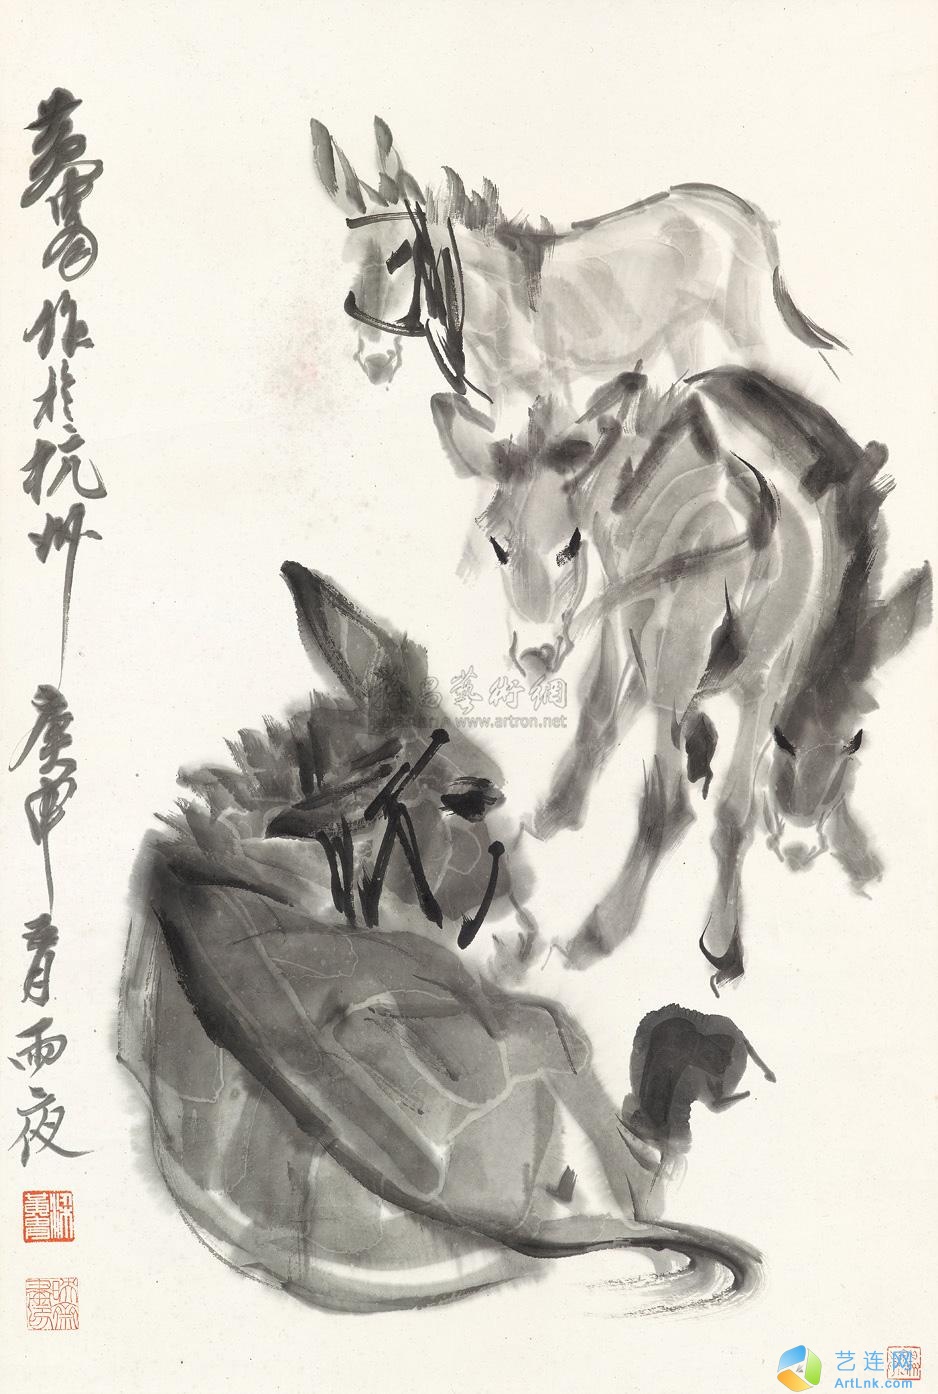 黄胄作於杭州庚申五月雨夜
梁黄胄
昌藝術網
www.artron.net
艺连网
ArtLnk.com